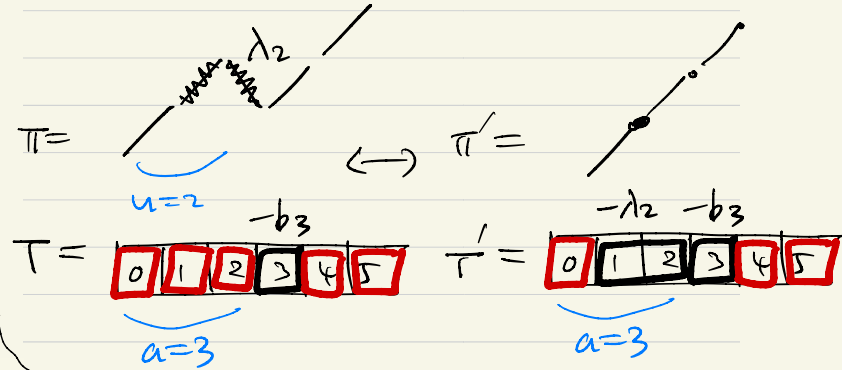 λ₂
π=
u=2
↔
π′=
-b₃
T=
0 1 2 3 4 5
a=3
-λ₂ -b₃
T′=
0 1 2 3 4 5
a=3